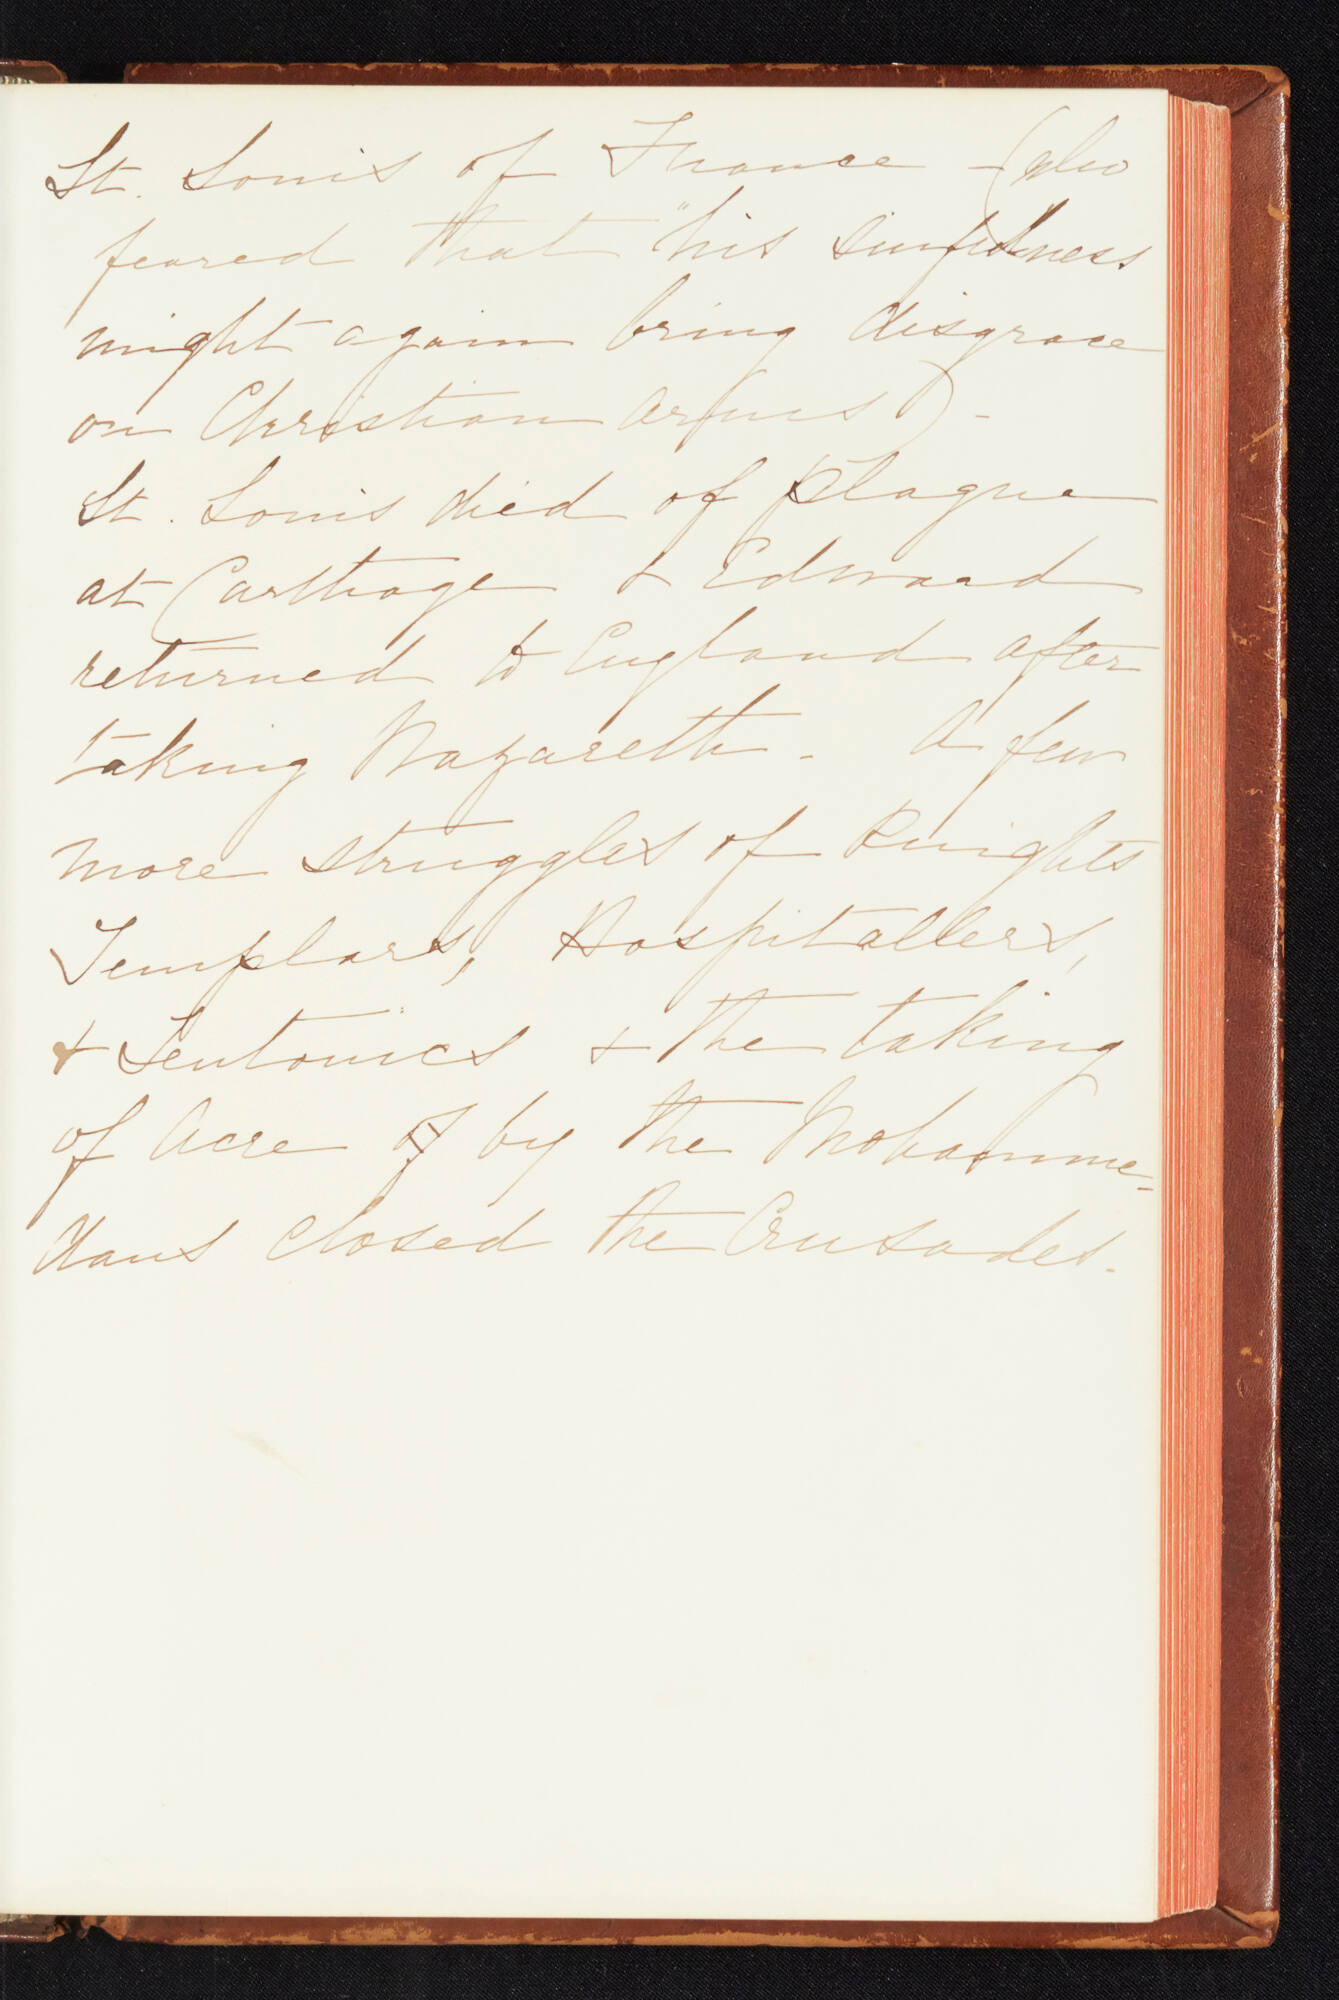 St. Louis of France - (who
feared that "his sinfulness
might again bring disgrace
on Christian arms") -
St. Louis died of plague
at Carthage & Edward
returned to England after
taking Nazareth. A few
more struggles of Knights
Templars, Hospitallers,
& Teutonics & the taking
of Acre of by the Mohamme-
dans closed the Crusades.